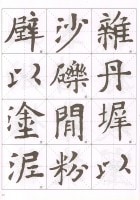 雜丹墀以
沙礫閒粉
壁以塗泥